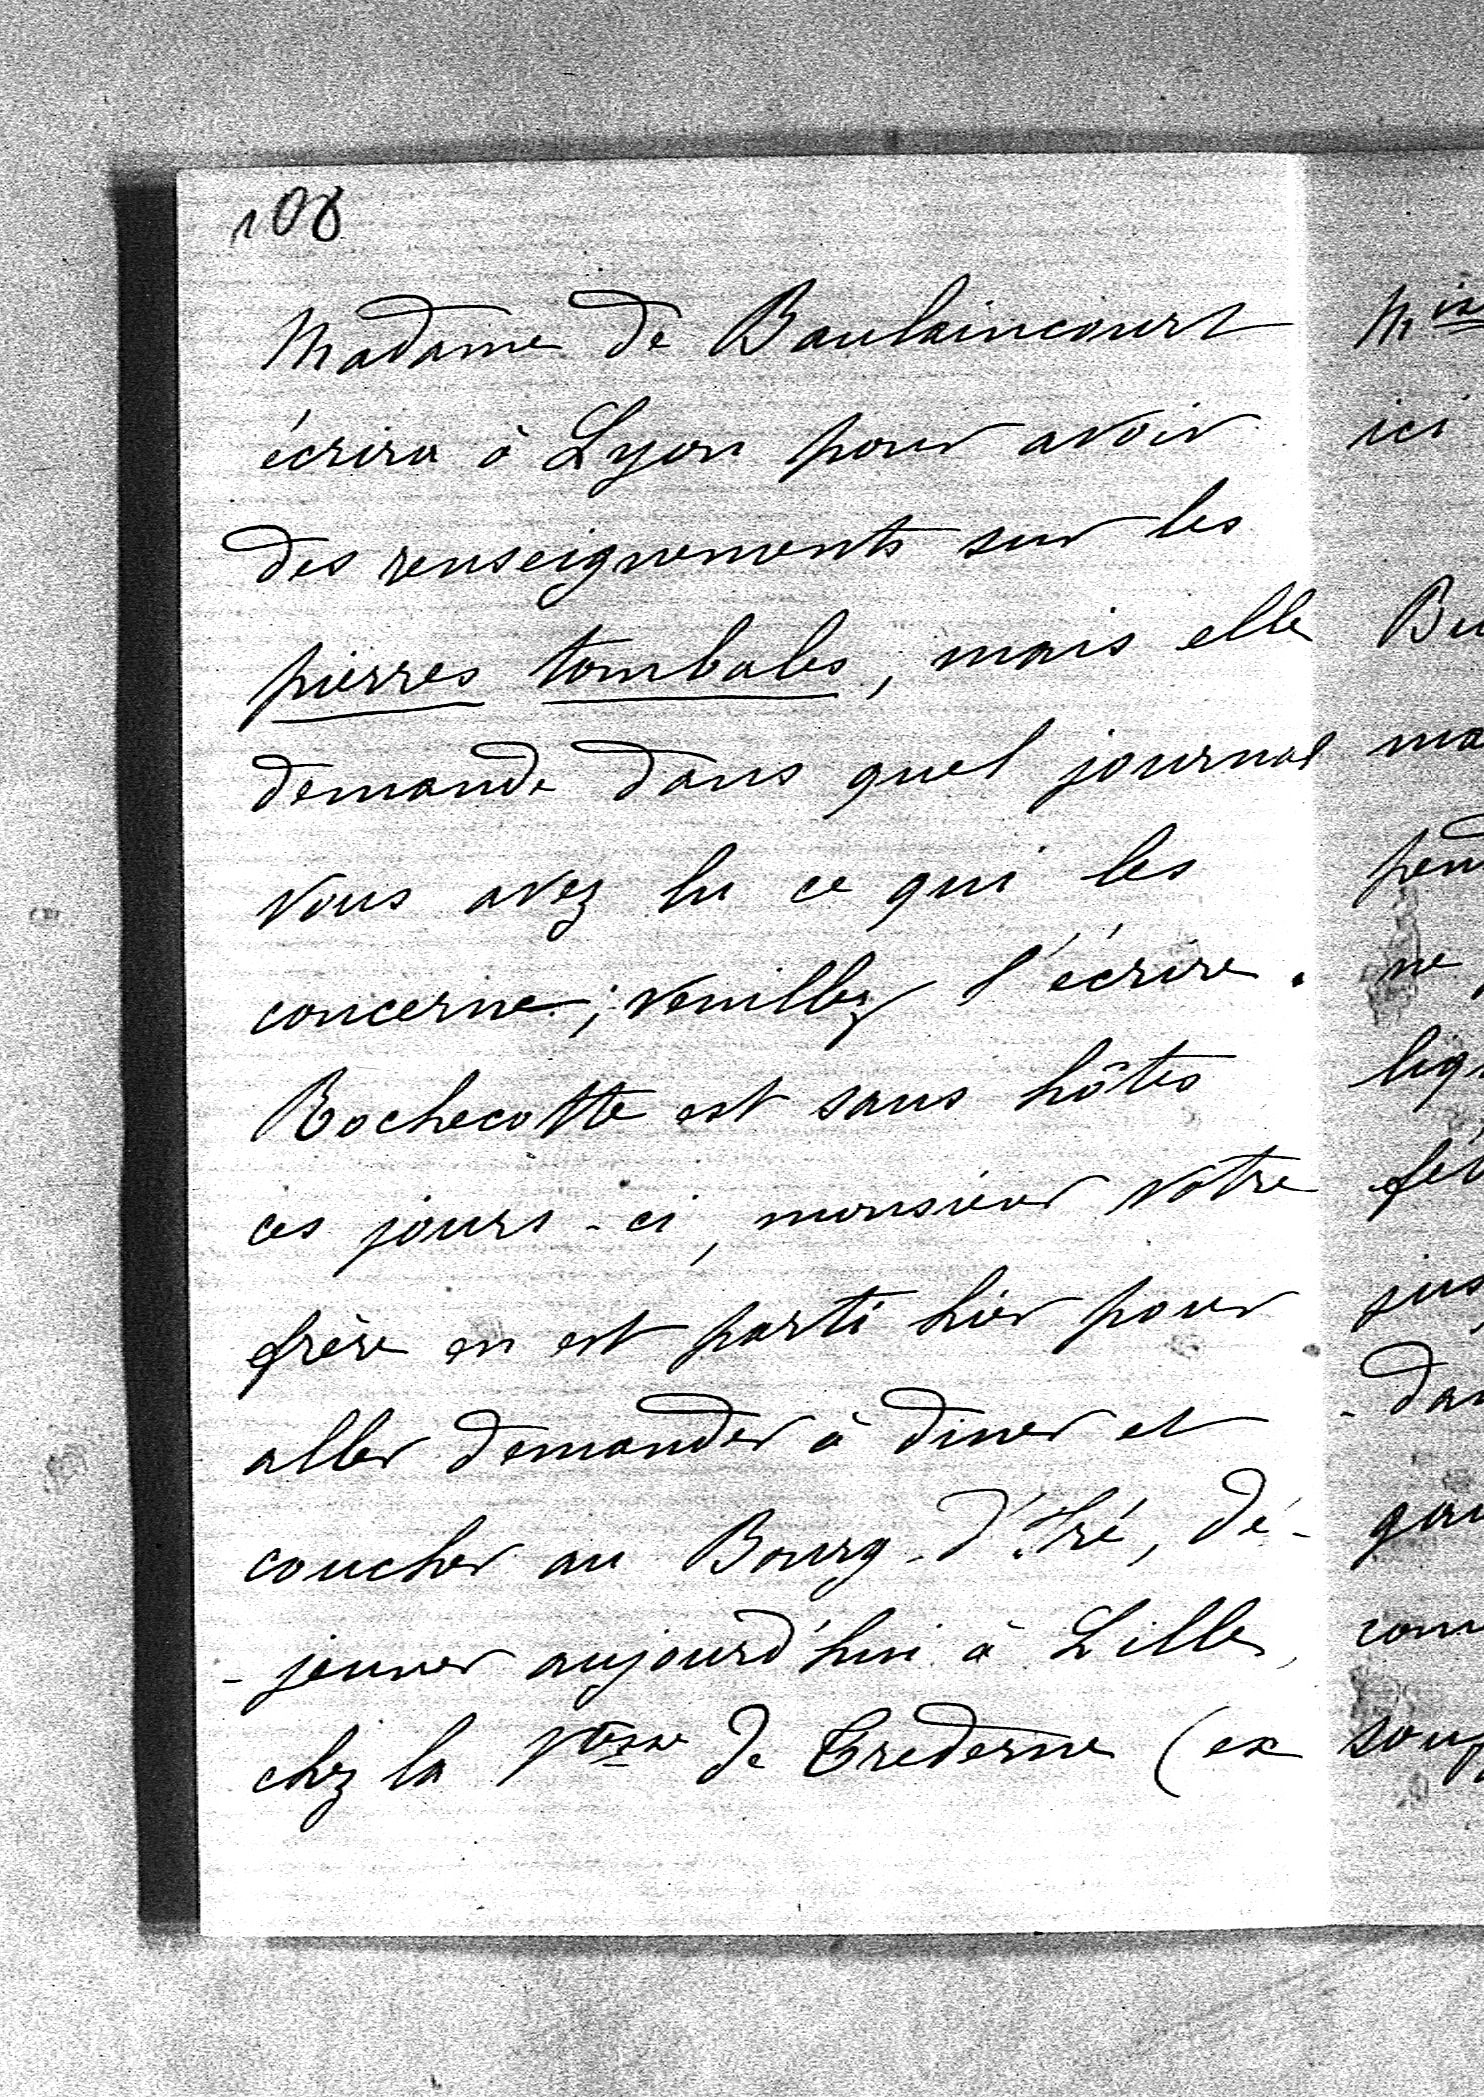 108
Madame de Baulaincourt
écrira à Lyon pour avoir
des renseignements sur les
pierres tombales, mais elle
demande dans quel journal
vous avez lu ce qui les
concerne; veuillez l'écrire.
Rochecotte est sans hôtes
ces jours-ci, monsieur votre
frère en est parti hier pour
aller demander à diner et
coucher au Bourg-d'Iré, dé-
-jeuner aujourd'hui à Lille,
chez la Vtesse de Trederne (ex
ici